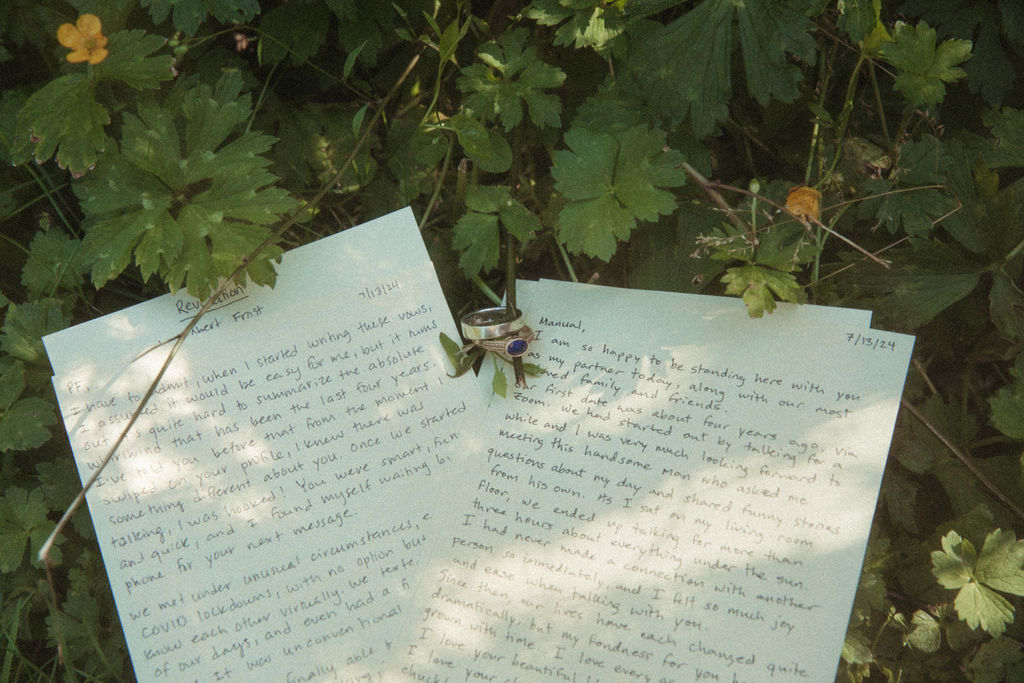 7/13/24
Albert Frost
PF,
I have to admit, when I started writing these vows,
I assumed it would be easy for me, but it turns
out it's quite hard to summarize the absolute
whirlwind that has been the last four years.
I've told you before that from the moment I
swiped on your profile, I knew there was
something different about you. Once we started
talking, I was hooked! You were smart, fun
and quick, and I found myself waiting by
phone for your next message.
We met under unusual circumstances,
COVID lockdowns, with no option but
know each other virtually. We texte
of our days, and even had a f
It was unconventional
finally able
7/13/24
Manual,
I am so happy to be standing here with you
as my partner today, along with our most
loved family and friends.
Our first date was about four years ago, via
Zoom. We had started out by talking for a
while and I was very much looking forward to
meeting this handsome man who asked me
questions about my day and shared funny stories
from his own. As I sat on my living room
floor, we ended up talking for more than
three hours about everything under the sun.
I had never made a connection with another
person so immediately, and I felt so much joy
and ease when talking with you.
Since then, our lives have each changed quite
dramatically, but my fondness for you has
grown with time. I love every
I love your beautiful
I love your
chuck